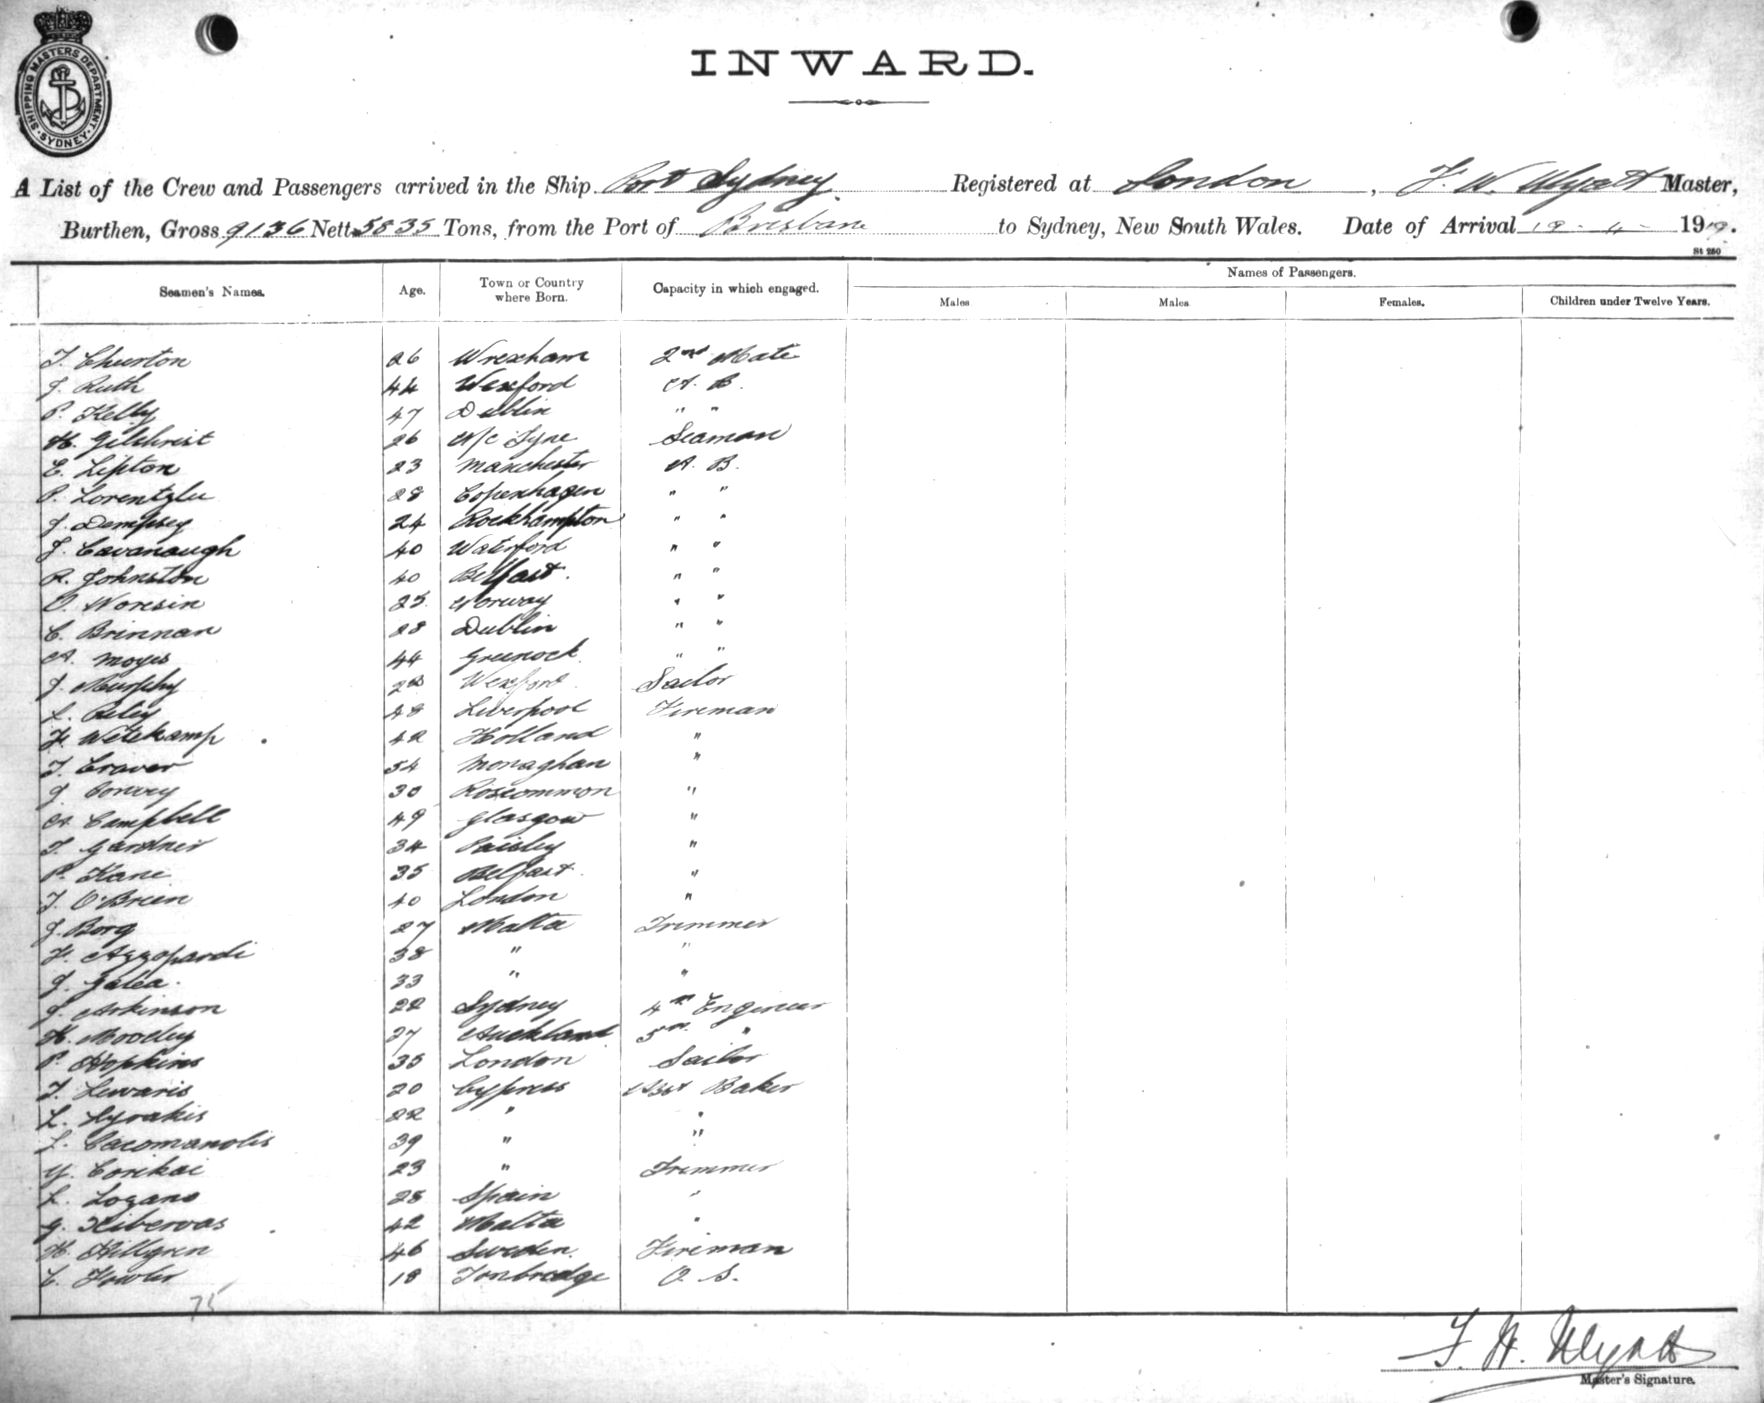 SHIPPING MASTERS DEPARTMENT
SYDNEY
INWARD.
A List of the Crew and Passengers arrived in the Ship Port Sydney Registered at London, F. W. Wyatt Master,
Burthen, Gross 9136 Nett 5835 Tons, from the Port of Brisbane to Sydney, New South Wales. Date of Arrival 19-4-1919.
St 250
Seamen's Names. Age. Town or Country where Born. Capacity in which engaged. Names of Passengers.
Males Males Females. Children under Twelve Years.
T. Churton 26 Wrexham 2nd Mate
J. Ruth 44 Wexford A. B.
P. Kelly 47 Dublin " "
H. Gilchrist 26 N/c Tyne Seaman
E. Lipton 23 Manchester A. B.
P. Lorentzlu 28 Copenhagen " "
J. Dempsey 24 Rockhampton " "
J. Cavanaugh 40 Waterford " "
R. Johnston 40 Belfast. " "
O. Woresin 25 Norway " "
C. Brinnan 28 Dublin " "
A. Moyes 44 Greenock " "
J. Murphy 28 Wexford Sailor
L. Riley 48 Liverpool Fireman
F. Wetekamp 42 Holland "
T. Craver 54 Monaghan "
J. Convey 30 Roscommon "
A. Campbell 49 Glasgow "
T. Gardner 34 Paisley "
P. Kane 35 Belfast. "
T. O'Brien 40 London "
J. Borg 27 Malta Trimmer
F. Azzopardi 38 " "
J. Galea. 33 " "
J. Atkinson 22 Sydney 4th Engineer
H. Moodey 27 Auckland 5th "
P. Hopkins 35 London Sailor
T. Lewaris 20 Cypress Asst Baker
L. Lyrakis 22 " "
L. Cacomanolis 39 " "
Y. Corikai 23 " Trimmer
L. Lozano 28 Spain "
G. Xiberras 42 Malta "
H. Killgren 46 Sweden. Fireman
C. Fowler 18 Tonbredge O. S.
75
F. W. Wyatt
Master's Signature.